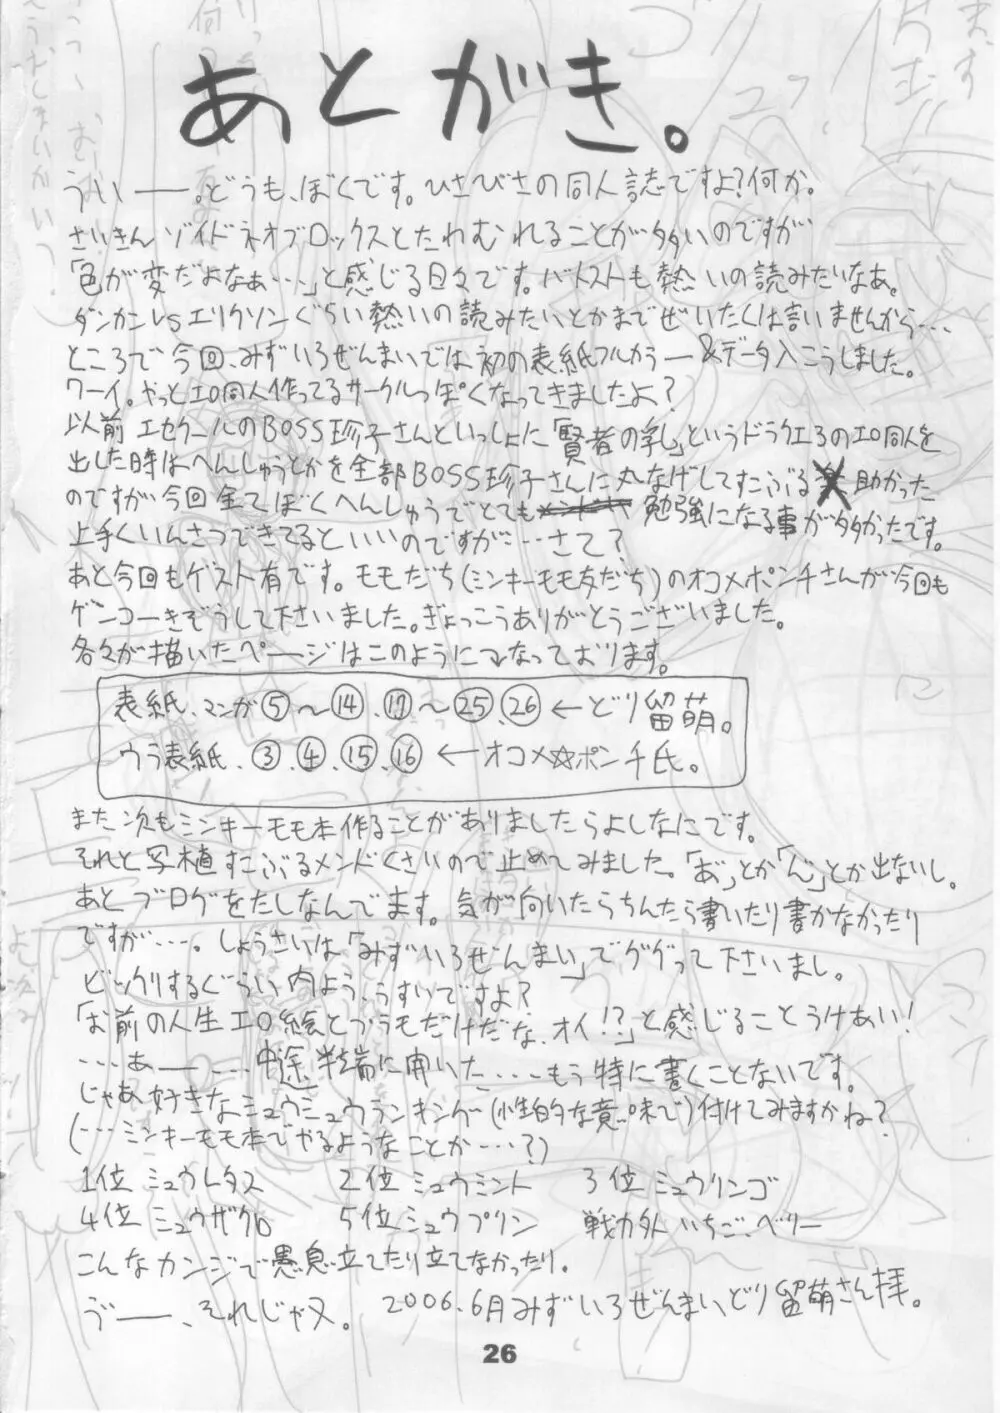 あとがき。
ういーー。どうも、ぼくです。ひさびさの同人誌ですよ?何か。
さいきんゾイドネオブロックスとたわむれることが多いのですが
「色が変だよなぁ…」と感じる日々です。バトストも熱いの読みたいなあ。
ダンカンvsエリクソンぐらい熱いの読みたいとかまでぜいたくは言いませんから…
ところで今回、みずいろぜんまいでは初の表紙フルカラー&データ入こうしました。
ワーイ。やっとエロ同人作ってるサークルっぽくなってきましたよ?
以前エセクールのBOSS珍子さんといっしょに「賢者の乳」というドラクエ3のエロ同人を
出した時はへんしゅうとかを全部BOSS珍子さんに丸なげしてすこぶる 助かった
のですが今回全てぼくへんしゅうでとても 勉強になる事が多かったです。
上手くいんさつできてるといいのですが…さて?
あと今回もゲスト有です。モモだち(ミンキーモモ友だち)のオコメポンチさんが今回も
ゲンコーきぞうして下さいました。ぎょっこうありがとうございました。
各々が描いたページはこのようになっております。
表紙、マンガ⑤〜⑭、⑰〜㉕、㉖←どり留萌。
ウラ表紙、③、④、⑮、⑯←オコメ☆ポンチ氏。
また次もミンキーモモ本作ることがありましたらよしなにです。
それと写植すこぶるメンドくさいので止めてみました。「あ゛」とか「ん゛」とか出ないし。
あとブログをたしなんでます。気が向いたらちんたら書いたり書かなかったり
ですが…。しょうさいは「みずいろぜんまい」でググって下さいまし。
ビックリするぐらい内よううすいですよ?
「お前の人生エロ絵とプラモだけだな、オイ!?」と感じることうけあい!
…あー…中途半端に開いた…もう特に書くことないです。
じゃあ好きなミュウミュウランキング(性的な意味で)付けてみますかね?
(…ミンキーモモ本でやるようなことか…?)
1位 ミュウレタス 2位 ミュウミント 3位 ミュウリンゴ
4位 ミュウザクロ 5位 ミュウプリン 戦力外 いちご、ベリー
こんなカンジで愚息立てたり立てなかったり。
う゛ーー、それじゃヌ。 2006.6月みずいろぜんまい、どり留萌さん拝。
26